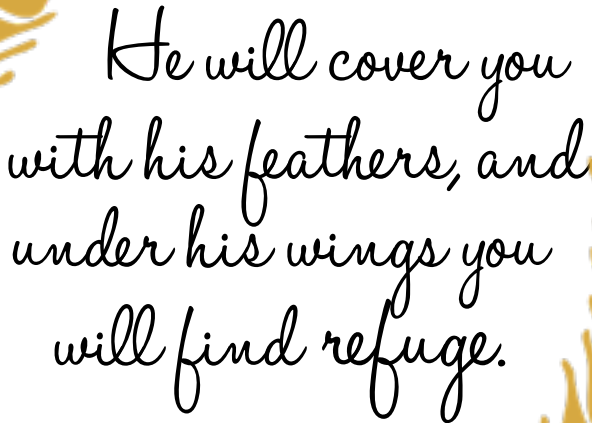 He will cover you
with his feathers, and
under his wings you
will find refuge.